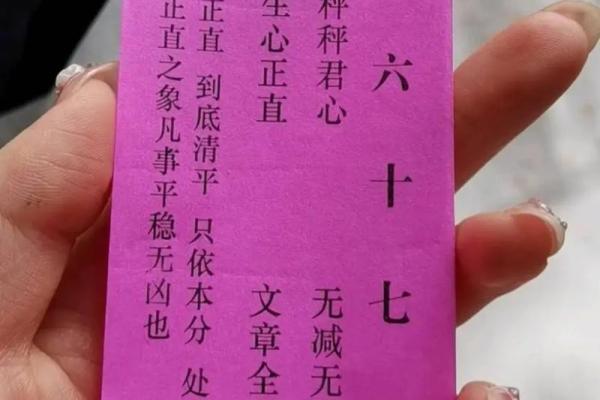 六十七
秤秤君心 无减无
生心正直 文章全
正直 到底清平 只依本分 处
正直之象凡事平稳无凶也